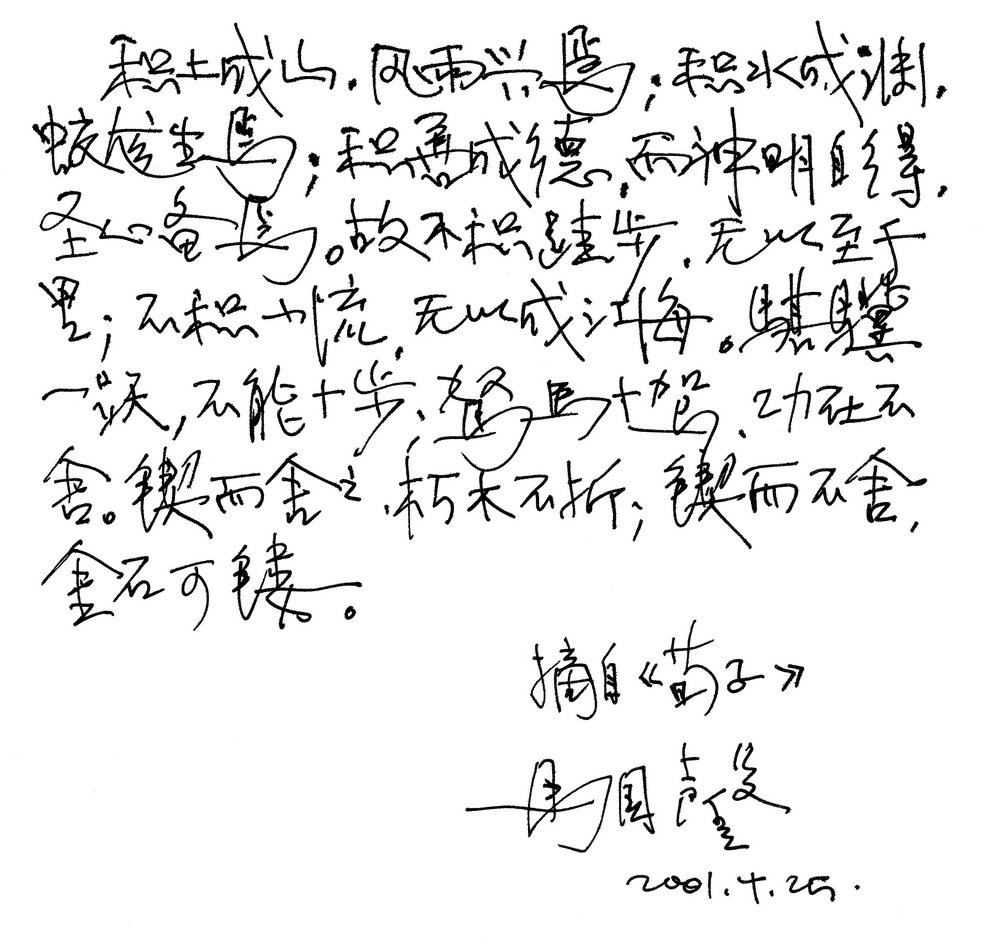 积土成山,风雨兴焉;积水成渊,
蛟龙生焉;积善成德,而神明自得,
圣心备焉。故不积跬步,无以至千
里;不积小流,无以成江海。騏驥
一跃,不能十步、駑馬十駕,功在不
舍。锲而舍之,朽木不折;锲而不舍,
金石可镂。
摘自《荀子》
馬国馨
2001.4.25.